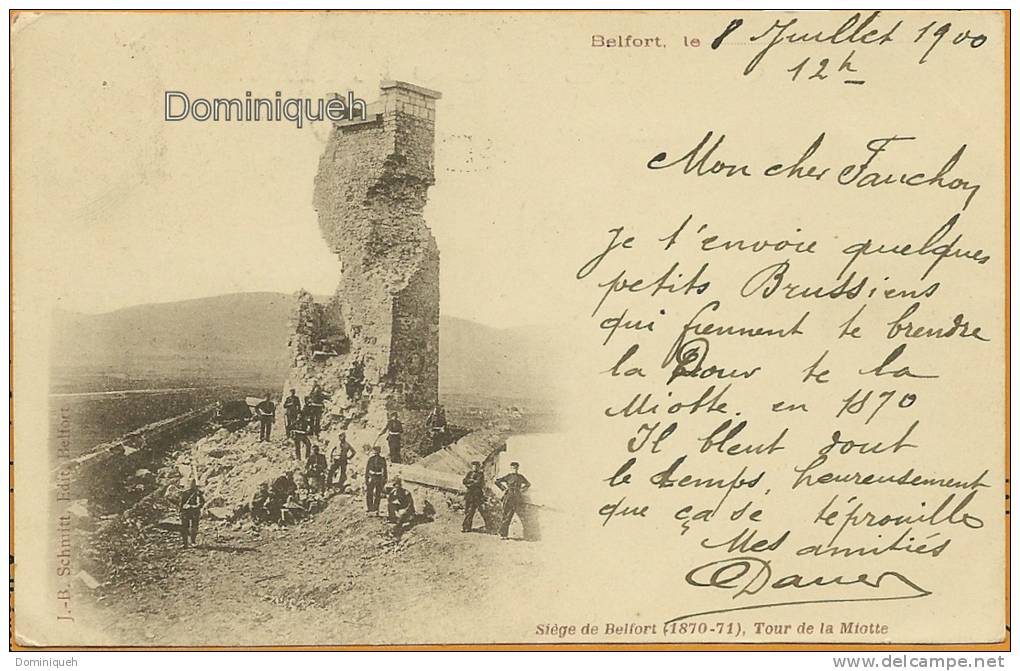 Belfort, le 8 Juillet 1900
12h
Dominiqueh
Mon cher Fauchon
Je t'envoie quelques
petits Brussiens
qui fiennent te brendre
la Dour te la
Miotte. en 1870
Il bleut dout
le temps, heureusement
que ça se téprouille
Mes amitiés
Dauer
J.-B. Schmitt, Edit., Belfort
Siège de Belfort (1870-71), Tour de la Miotte
Dominiqueh
http://www.delcampe.net